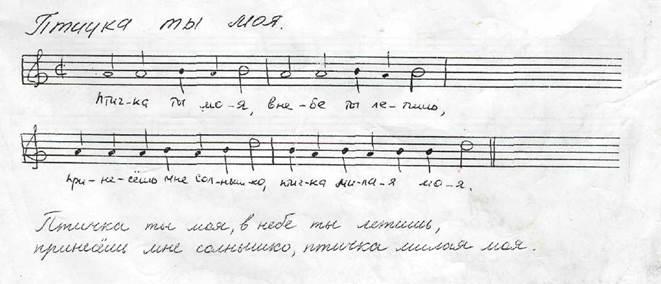 Птичка ты моя.
Птич-ка ты мо-я, в не-бе ты ле-тишь,
при-не-сёшь мне сол-ныш-ко, птич-ка ми-ла-я мо-я.
Птичка ты моя, в небе ты летишь,
принесёшь мне солнышко, птичка милая моя.